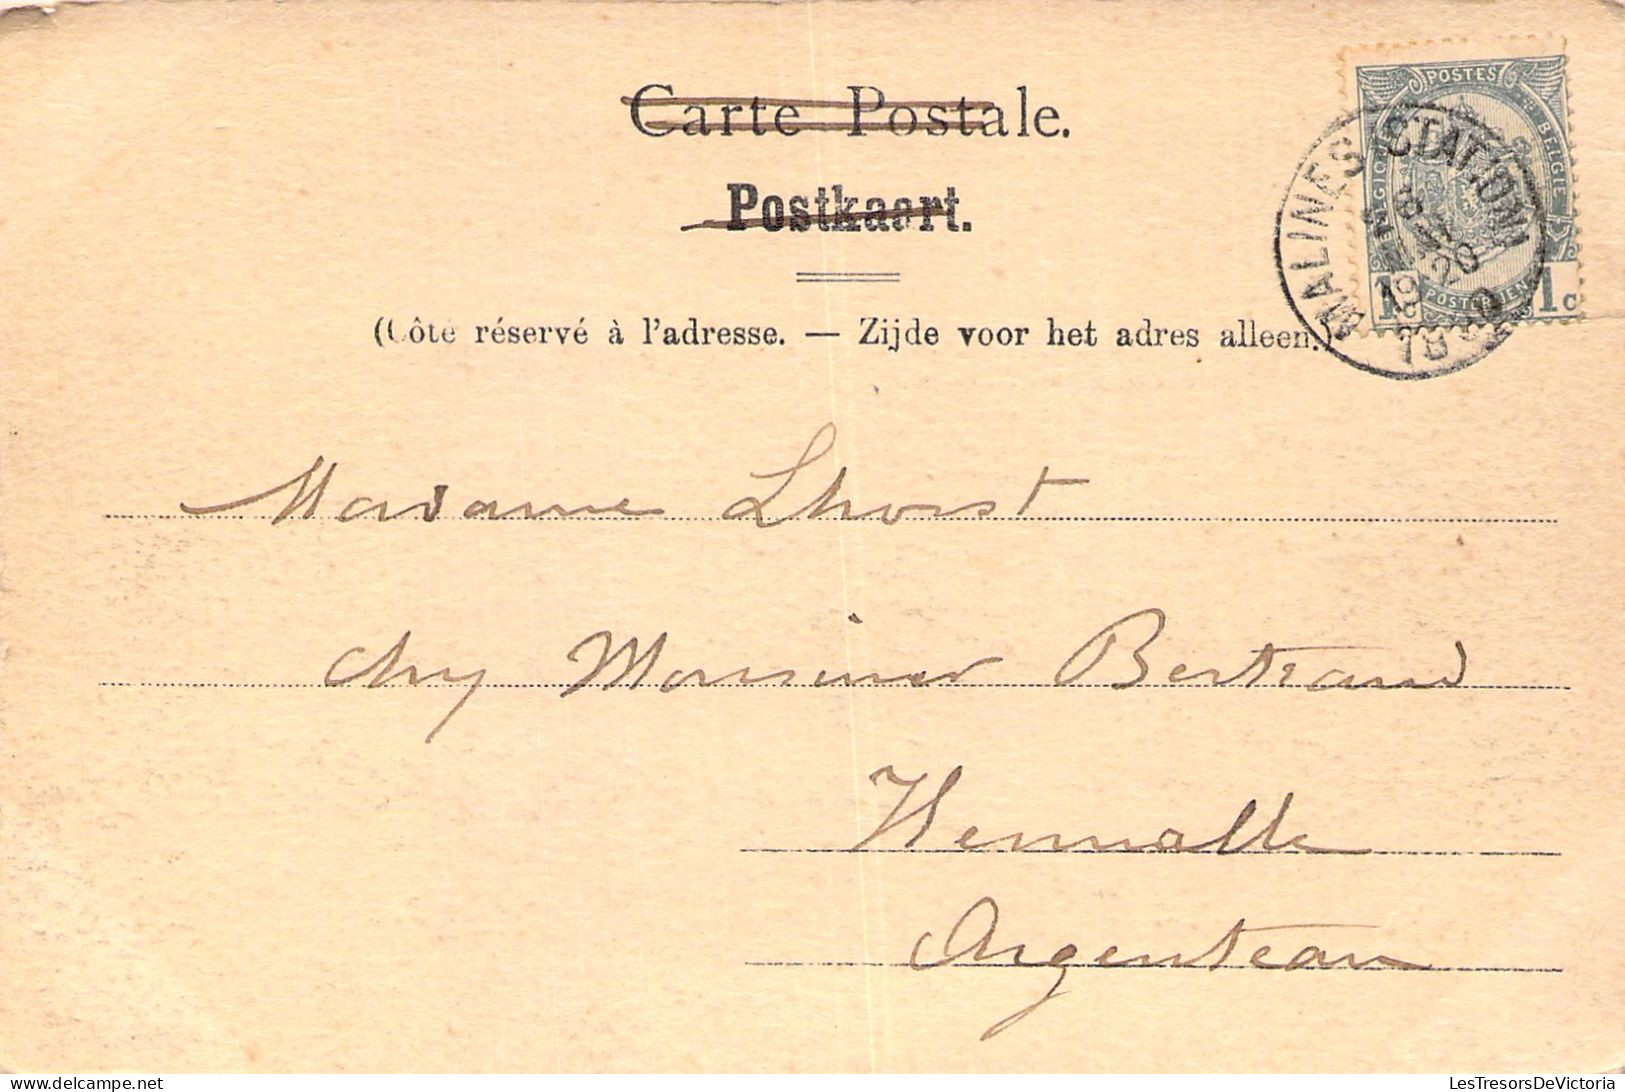 Carte Postale.
Postkaart.
(Côté réservé à l'adresse. — Zijde voor het adres alleen.)
POSTES
BELGIQUE
BELGIE
POSTERIJEN
1 1c
MALINES STATION
Madame Lhoist
chez Monsieur Bertrand
Hermalle
Argenteau
LesTresorsDeVictoria